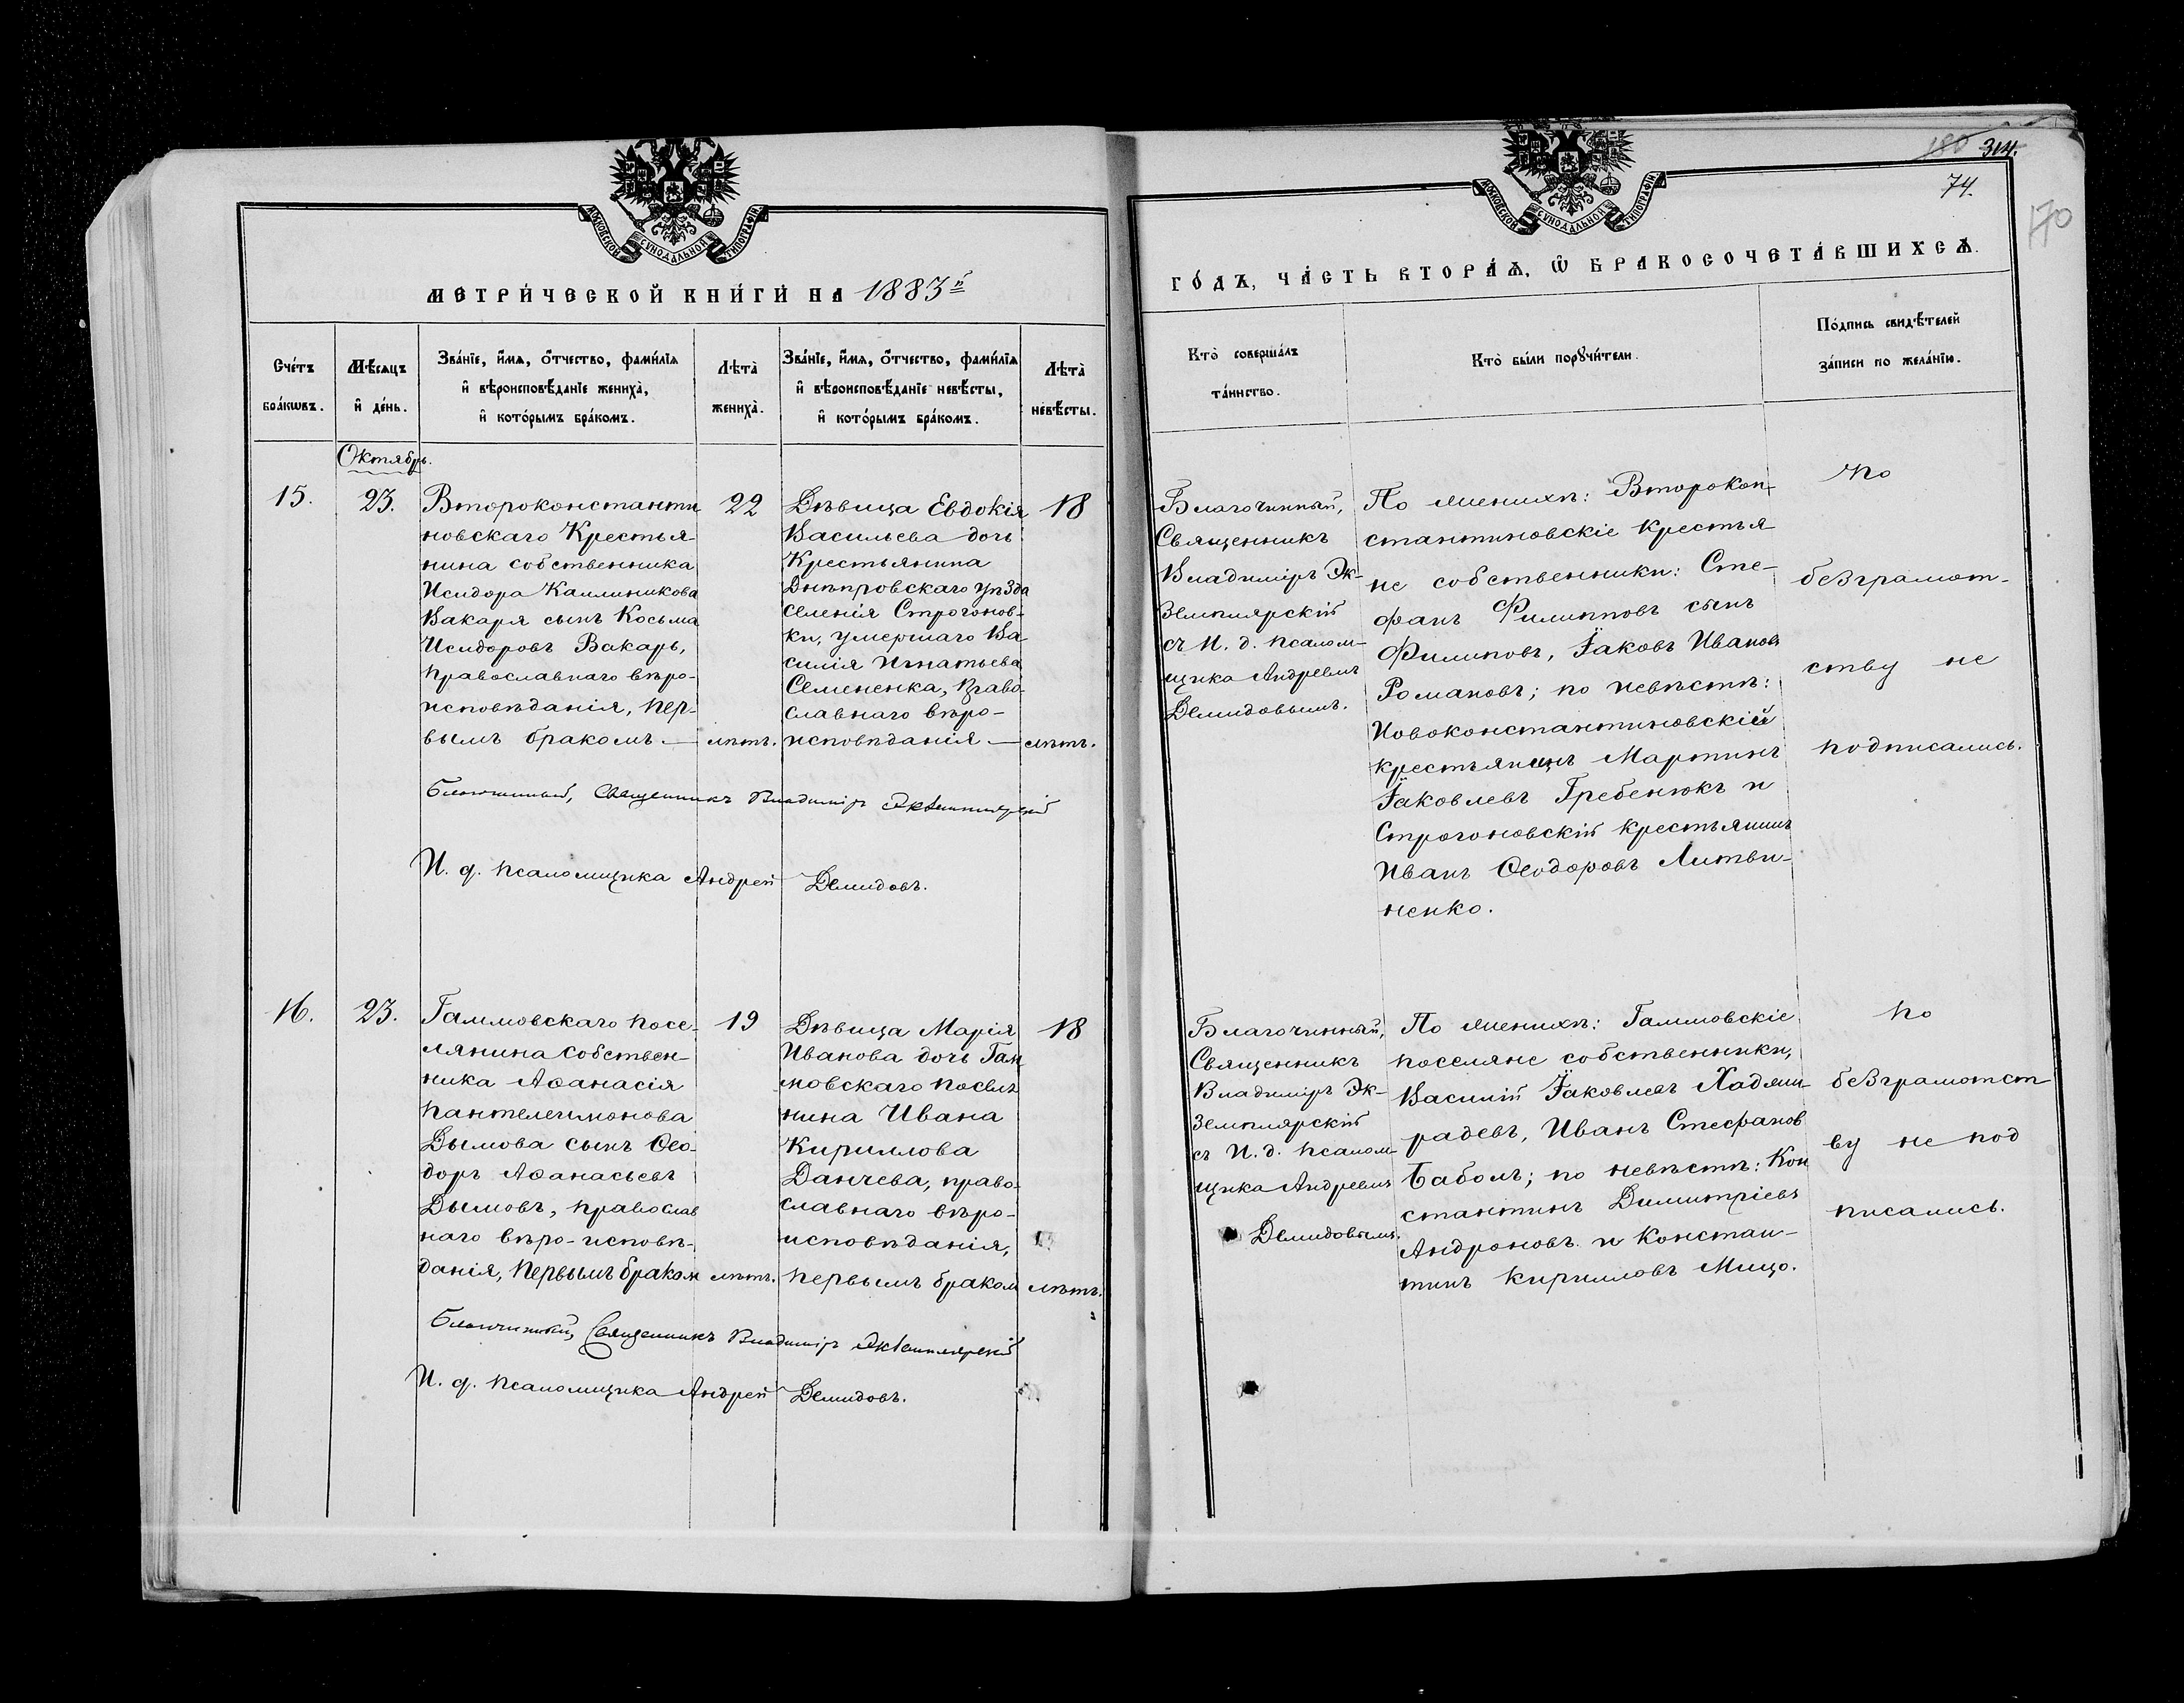 МОСКОВСКОЙ СѴНОДАЛЬНОЙ ТИПОГРАФІИ
МЕТРИ́ЧЕСКОЙ КНИ́ГИ НА 1883й
Сче́тъ бра́кѡвъ.
Мѣ́сяцъ и҆ де́нь.
Зва́нїе, и҆́мя, ѻ҆́тчество, фами́лїя
и҆ вѣроисповѣ́данїе жениха̀,
и҆ кото́рымъ бра́комъ.
Лѣта̀ жениха̀.
Зва́нїе, и҆́мя, ѻ҆́тчество, фами́лїя
и҆ вѣроисповѣ́данїе невѣ́сты,
и҆ кото́рымъ бра́комъ.
Лѣта̀ невѣ́сты.
Октябрь.
15.
23.
Второконстанти
новскаго Крестья
нина собственника
Исидора Калиникова
Вакаря сынъ Косьма
Исидоровъ Вакарь,
Православнаго вѣро-
исповѣданія, пер-
вымъ бракомъ —
22
лѣтъ.
Дѣвица Евдокія
Васильева дочь
Крестьянина
Днѣпровскаго уѣзда
селенія Строгонов-
ки, умершаго Ва
силія Игнатьева
Семененка, Право
славнаго вѣро-
исповѣданія —
18
лѣтъ.
Благочинный, Священникъ Владиміръ Экземплярскій
И. д. псаломщика Андрей Демидовъ.
16.
23.
Гаммовскаго посе-
лянина собствен-
ника Аѳанасія
Пантелеимонова
Дымова сынъ Ѳео-
доръ Аѳанасьевъ
Дымовъ, православ
наго вѣро-исповѣ-
данія, первымъ браком
19
лѣтъ.
Дѣвица Марія
Иванова дочь Гам
мовскаго поселя
нина Ивана
Кириллова
Данчева, право-
славнаго вѣро-
исповѣданія,
первымъ браком
18
лѣтъ.
Благочинный, Священникъ Владиміръ Экземплярскій
И. д. псаломщика Андрей Демидовъ.
180 314.
74.
170
МОСКОВСКОЙ СѴНОДАЛЬНОЙ ТИПОГРАФІИ
ГО́ДЪ, ЧА́СТЬ ВТОРА́Я, Ѡ҆ БРАКОСОЧЕТА́ВШИХСЯ.
Кто̀ соверша́лъ
та́инство.
Кто̀ бы́ли порꙋчи́тели.
По́дпись свидѣ́телей
за́писи по жела́нїю.
Благочинный,
Священникъ
Владиміръ Эк-
земплярскій
съ И. д. псалом-
щика Андреемъ
Демидовымъ.
По женихѣ: Второкон
стантиновскіе крестья
не собственники: Сте-
фанъ Филипповъ сынъ
Филиповъ, Іаковъ Иванов
Романовъ; по невѣстѣ:
Новоконстантиновскій
крестьянинъ Мартинъ
Іаковлевъ Гребенюкъ и
Строгоновскій крестьянинъ
Иванъ Ѳеодоровъ Литви-
ненко.
По
безграмот-
ству не
подписались.
Благочинный,
Священникъ
Владиміръ Эк-
земплярскій
съ И. д. псалом-
щика Андреемъ
Демидовымъ.
По женихѣ: Гаммовскіе
поселяне собственники,
Василій Іаковлевъ
Иванъ Стефанов
по невѣстѣ: Кон
стантинъ Димитріевъ
Андроновъ и Констан-
тинъ Кирилловъ Мицо.
По
безграмотст
ву не под
писались.